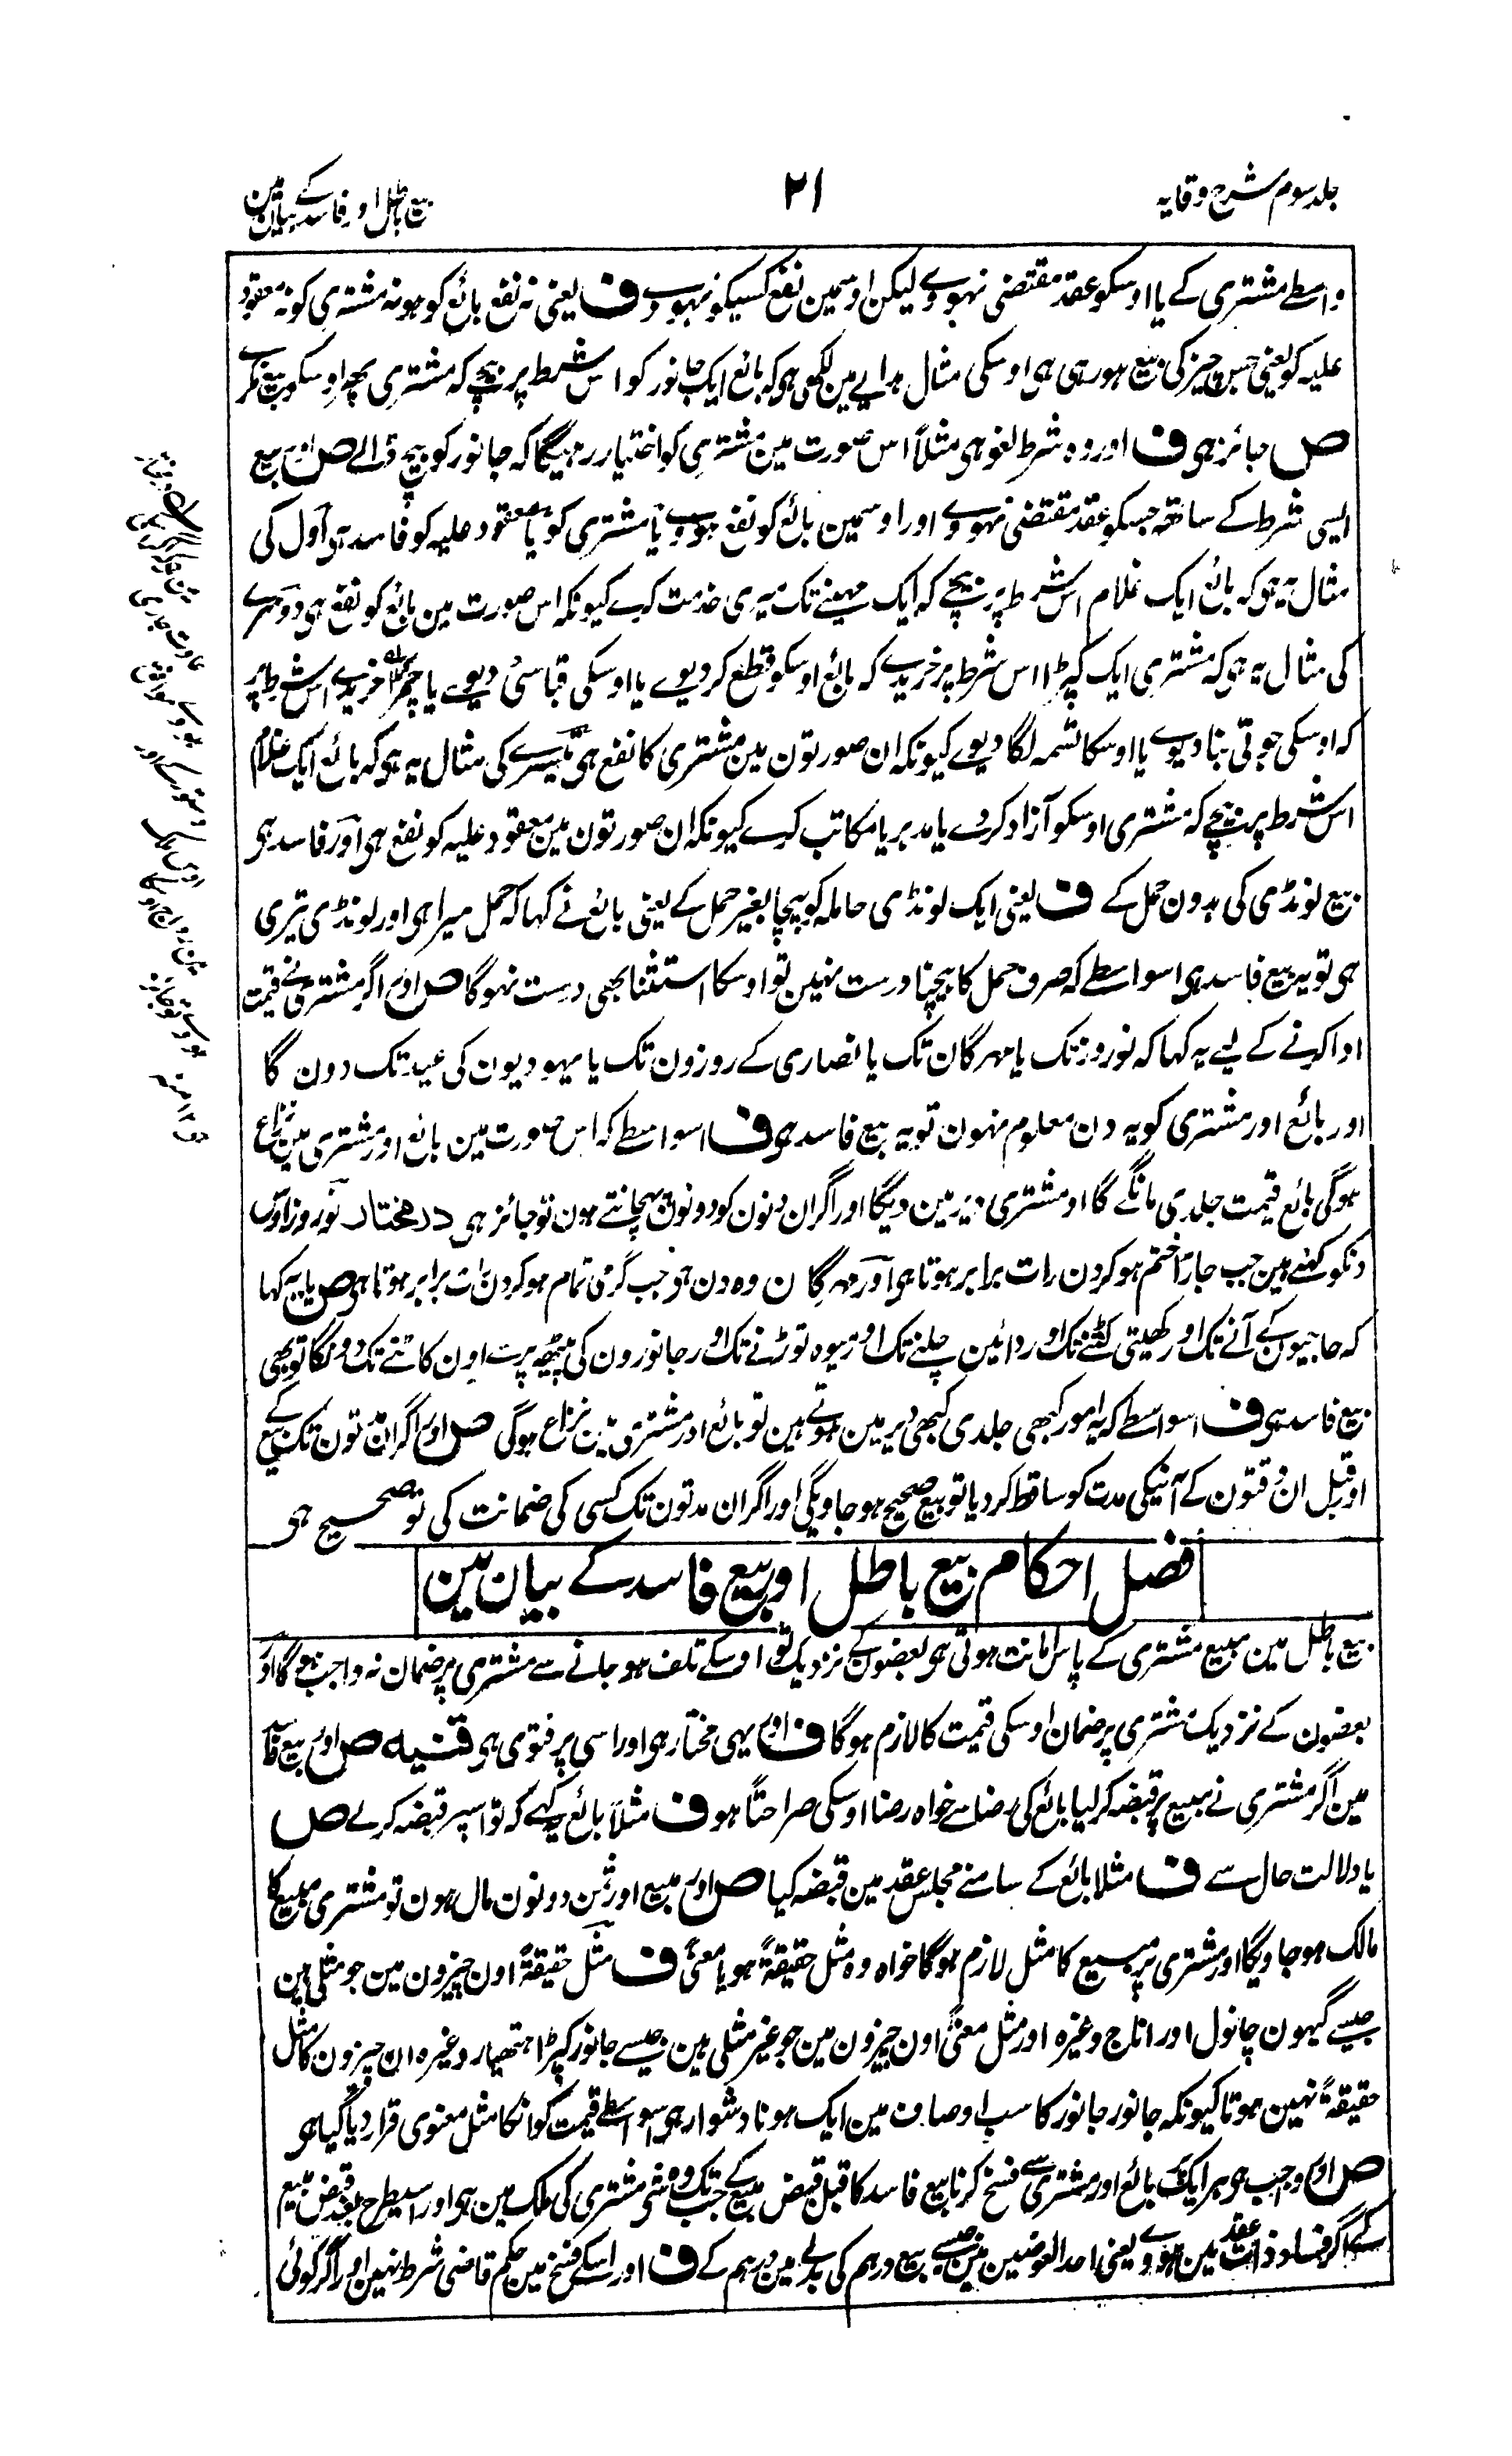 جلد سوم شرح وقایہ
۲۱
بیع باطل اور فاسد کے بیان مین
واسطے مشتری کے یا اوسکو عقد مقتضی نہووے لیکن اوسمین نفع کسیکو نہووے ف یعنی نہ نفع بائع کو ہو نہ مشتری کو نہ معقود
علیہ کو یعنی جس چیز کی بیع ہو رہی ہی اوسکی مثال ہدایے مین لکھی ہی کہ بائع ایک جانور کو اس شرط پر بیچے کہ مشتری پھر اوسکو بیع نکرے
ص جائز ہی ف اور وہ شرط لغو ہی مثلاً اس صورت مین مشتری کو اختیار رہیگا کہ جانور کو بیچ ڈالے ص اور بیع
ایسی شرط کے ساتھ جسکو عقد مقتضی نہووے اور اوسمین بائع کو نفع ہووے یا مشتری کو یا معقود علیہ کو فاسد ہی اول کی
مثال یہ ہی کہ بائع ایک غلام اس شرط پر بیچے کہ ایک مہینے تک میری خدمت کرے کیونکہ اس صورت مین بائع کو نفع ہی دوسرے
کی مثال یہ ہی کہ مشتری ایک کپڑا اس شرط پر خریدے کہ بائع اوسکو قطع کر دیوے یا اوسکی قبا سی دیوے یا چمڑا خریدے اس شرط پر
کہ اوسکی جوتی بنا دیوے یا اوسکا تسمہ لگا دیوے کیونکہ ان صورتون مین مشتری کا نفع ہی تیسرے کی مثال یہ ہی کہ بائع ایک غلام
اس شرط پر بیچے کہ مشتری اوسکو آزاد کردے یا مدبر یا مکاتب کرے کیونکہ ان صورتون مین معقود علیہ کو نفع ہی اور فاسد ہی
بیع لونڈی کی بدون حمل کے ف یعنی ایک لونڈی حاملہ کو بیچا بغیر حمل کے یعنی بائع نے کہا کہ حمل میرا ہی اور لونڈی تیری
ہی تو یہ بیع فاسد ہی اسواسطے کہ صرف حمل کا بیچنا درست نہین تو اوسکا استثنا بھی درست نہوگا ص اور اگر مشتری نے قیمت
ادا کرنے کے لیے یہ کہا کہ نوروز تک یا مہرگان تک یا نصاری کے روزون تک یا یہودیون کی عید تک دون گا
اور بائع اور مشتری کو یہ دن معلوم نہون تو یہ بیع فاسد ہی ف اسواسطے کہ اس صورت مین بائع اور مشتری مین نزاع
ہوگی بائع قیمت جلدی مانگے گا اور مشتری دیر مین دیگا اور اگر ان دنون کو دونون پہچانتے ہون تو جائز ہی درمختار نوروز اوس
دنکو کہتے ہین جب جاڑا ختم ہو کر دن رات برابر ہوتا ہی اور مہرگان وہ دن ہی جب گرمی تمام ہو کر دن رات برابر ہوتا ہی ص یا یہ کہا
کہ حاجیون کے آنے تک اور کھیتی کٹنے تک اور دائین چلنے تک اور میوہ توڑنے تک اور جانورون کی پیٹھ پر سے اون کاٹنے تک دونگا تو بھی
بیع فاسد ہی ف اسواسطے کہ یہ امور کبھی جلدی کبھی دیر مین ہوتے ہین تو بائع اور مشتری مین نزاع ہوگی ص اور اگر ان مدتون تک بیع کے
اور قبل ان وقتون کے آنیکی مدت کو ساقط کردیا تو بیع صحیح ہو جاویگی اور اگر ان مدتون تک کسی کی ضمانت کی تو صحیح ہی
فصل احکام بیع باطل اور بیع فاسد کے بیان مین
بیع باطل مین مبیع مشتری کے پاس امانت ہوتی ہی بعضون کے نزدیک تو اوسکے تلف ہو جانے سے مشتری پر ضمان نہ واجب ہوگا اور
بعضون کے نزدیک مشتری پر ضمان اوسکی قیمت کا لازم ہوگا ف اور یہی مختار ہی اور اسی پر فتوی ہی قنیہ ص اور بیع فاسد
مین اگر مشتری نے مبیع پر قبضہ کرلیا بائع کی رضا سے خواہ رضا اوسکی صراحتاً ہو ف مثلاً بائع یہ کہے کہ تو اسپر قبضہ کرلے ص
یا دلالت حال سے ف مثلا بائع کے سامنے مجلس عقد مین قبضہ کیا ص اور مبیع اور ثمن دونون مال ہون تو مشتری مبیع کا
مالک ہو جاویگا اور مشتری پر مبیع کا مثل لازم ہوگا خواہ وہ مثل حقیقۃً ہو یا معنیً ف مثل حقیقۃً اون چیزون مین جو مثلی ہین
جیسے گیہون چانول اور اناج وغیرہ اور مثل معنیً اون چیزون مین جو غیر مثلی ہین جیسے جانور کپڑا ہتھیار وغیرہ ان چیزون کا مثل
حقیقۃً نہین ہوتا کیونکہ جانور جانور کا سب اوصاف مین ایک ہونا دشوار ہی اسواسطے قیمت کو انکا مثل معنوی قرار دیا گیا ہی
ص اور واجب ہی ہر ایک بائع اور مشتری سے فسخ کرنا بیع فاسد کا قبل قبض مبیع کے جب تک وہ شی مشتری کی ملک مین ہی اور اسیطرح بعد قبض مبیع
کے اگر فساد ذات عقد مین ہووے یعنی احد العوضین مین جیسے بیع درہم کی بدلے مین درہم کے ف اور اسکے فسخ مین حکم قاضی شرط نہین اور اگر کوئی